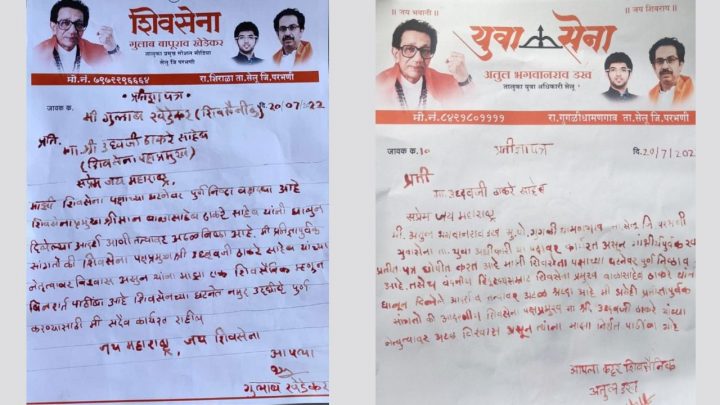 शिवसेना
गुलाब बापुराव खेडेकर
तालुका प्रमुख सोशल मीडिया
सेलू जि.परभणी
मो.नं. ७९७२२९६६६४
रा.शिराळा ता.सेलू जि.परभणी
जावक क्र.
प्रतिज्ञा पत्र
मी गुलाब खेडेकर (शिवसैनिक)
दि. 20/07/2022
प्रति,
मा.श्री उध्दवजी ठाकरे साहेब
(शिवसेना पक्षप्रमुख)
सप्रेम जय महाराष्ट्र,
माझी शिवसेना पक्षाच्या घटनेवर पुर्ण निष्ठा आहे
शिवसेनाप्रमुख श्रीमान बाळासाहेब ठाकरे साहेब यांनी घालुन
दिलेल्या आदर्श आणी तत्वावर आहे मी प्रतिज्ञापुर्वक
सांगतो की शिवसेना पक्षप्रमुख श्री उध्दवजी ठाकरे साहेब यांच्या
नेतृत्वावर विश्वास असुन यांना माझा एक शिवसैनिक म्हणुन
बिनशर्त पाठींबा आहे शिवसेनेच्या घटनेत नमुद उद्दीष्टे पुर्ण
करण्यासाठी मी सदैव कार्यरत राहील
जय महाराष्ट्र, जय शिवसेना
आपला
गुलाब खेडेकर
॥ जय भवानी ॥
॥ जय शिवराय ॥
युवा सेना
अतुल भगवानराव डख
तालुका युवा अधिकारी सेलू
मो.नं. ८४९१८०११११
रा.गुगळीधामणगाव ता.सेलू जि.परभणी
जावक क्र. 10
प्रतीज्ञापत्र
दि. 20/7/202
प्रती
मा. उध्दवजी ठाकरे साहेब
सप्रेम जय महाराष्ट्र
मी. अतुल भगवानराव डख मु.पो. गुगळी धामणगाव ता.सेलू जि परभणी
युवासेना ता. युवा अधीकारी या पदावर कार्यरत असुन
पत्र घोषीत करत आहे माझी शिवसेना पक्षाच्या घटनेवर पुर्ण निष्ठा
आहे. तसेच वंदनीय शिवसेना प्रमुख बाळासाहेब ठाकरे यांनी
घालुन दिलेले आदर्श व तत्वावर अढळ श्रध्दा आहे मी प्रतिज्ञापुर्वक
सांगतो की आदरणीय शिवसेना पक्षप्रमुख मा श्री. उध्दवजी ठाकरे यांच्या
नेतृत्वावर अढळ विश्वास असुन त्यांना माझा पाठींबा आहे
आपला कट्टर शिवसैनिक
अतुल डख